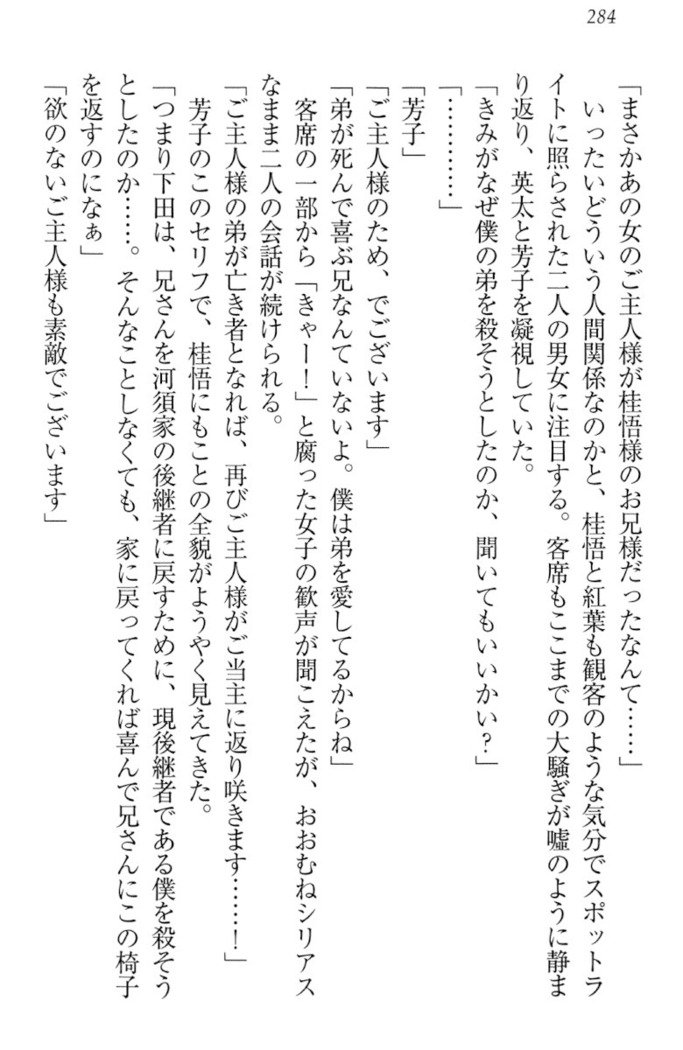 284
「まさかあの女のご主人様が桂悟様のお兄様だったなんて……」
　いったいどういう人間関係なのかと、桂悟と紅葉も観客のような気分でスポットラ
イトに照らされた二人の男女に注目する。客席もここまでの大騒ぎが嘘のように静ま
り返り、英太と芳子を凝視していた。
「きみがなぜ僕の弟を殺そうとしたのか、聞いてもいいかい？」
「…………」
「芳子」
「ご主人様のため、でございます」
「弟が死んで喜ぶ兄なんていないよ。僕は弟を愛してるからね」
　客席の一部から「きゃー！」と腐った女子の歓声が聞こえたが、おおむねシリアス
なまま二人の会話が続けられる。
「ご主人様の弟が亡き者となれば、再びご主人様がご当主に返り咲きます……！」
　芳子のこのセリフで、桂悟にもことの全貌がようやく見えてきた。
「つまり下田は、兄さんを河須家の後継者に戻すために、現後継者である僕を殺そう
としたのか……。そんなことしなくても、家に戻ってくれば喜んで兄さんにこの椅子
を返すのになぁ」
「欲のないご主人様も素敵でございます」